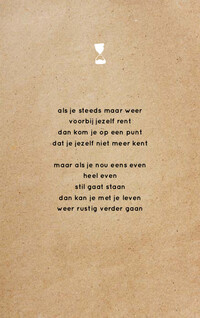 als je steeds maar weer
voorbij jezelf rent
dan kom je op een punt
dat je jezelf niet meer kent
maar als je nou eens even
heel even
stil gaat staan
dan kan je met je leven
weer rustig verder gaan